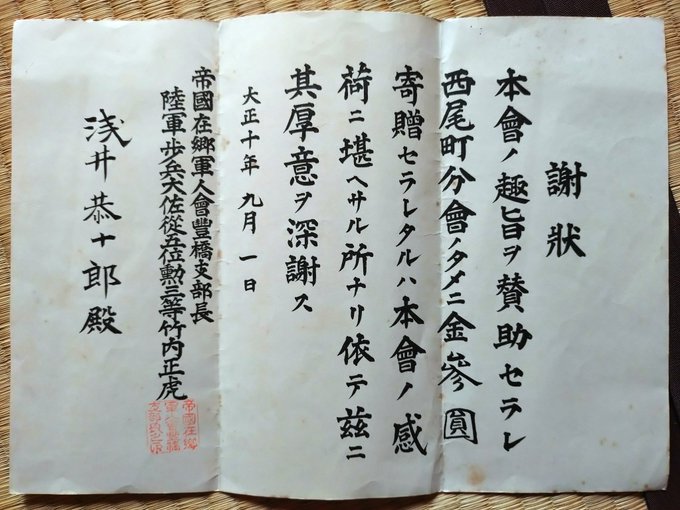 謝狀
本會ノ趣旨ヲ賛助セラレ
西尾町分會ノタメニ金參圓
寄贈セラレタルハ本會ノ感
荷ニ堪ヘサル所ナリ依テ茲ニ
其厚意ヲ深謝ス
大正十年九月一日
帝國在鄕軍人會豐橋支部長
陸軍歩兵大佐從五位勲三等竹内正虎
帝國在鄕
軍人會豐橋
支部長之印
浅井恭十郎殿